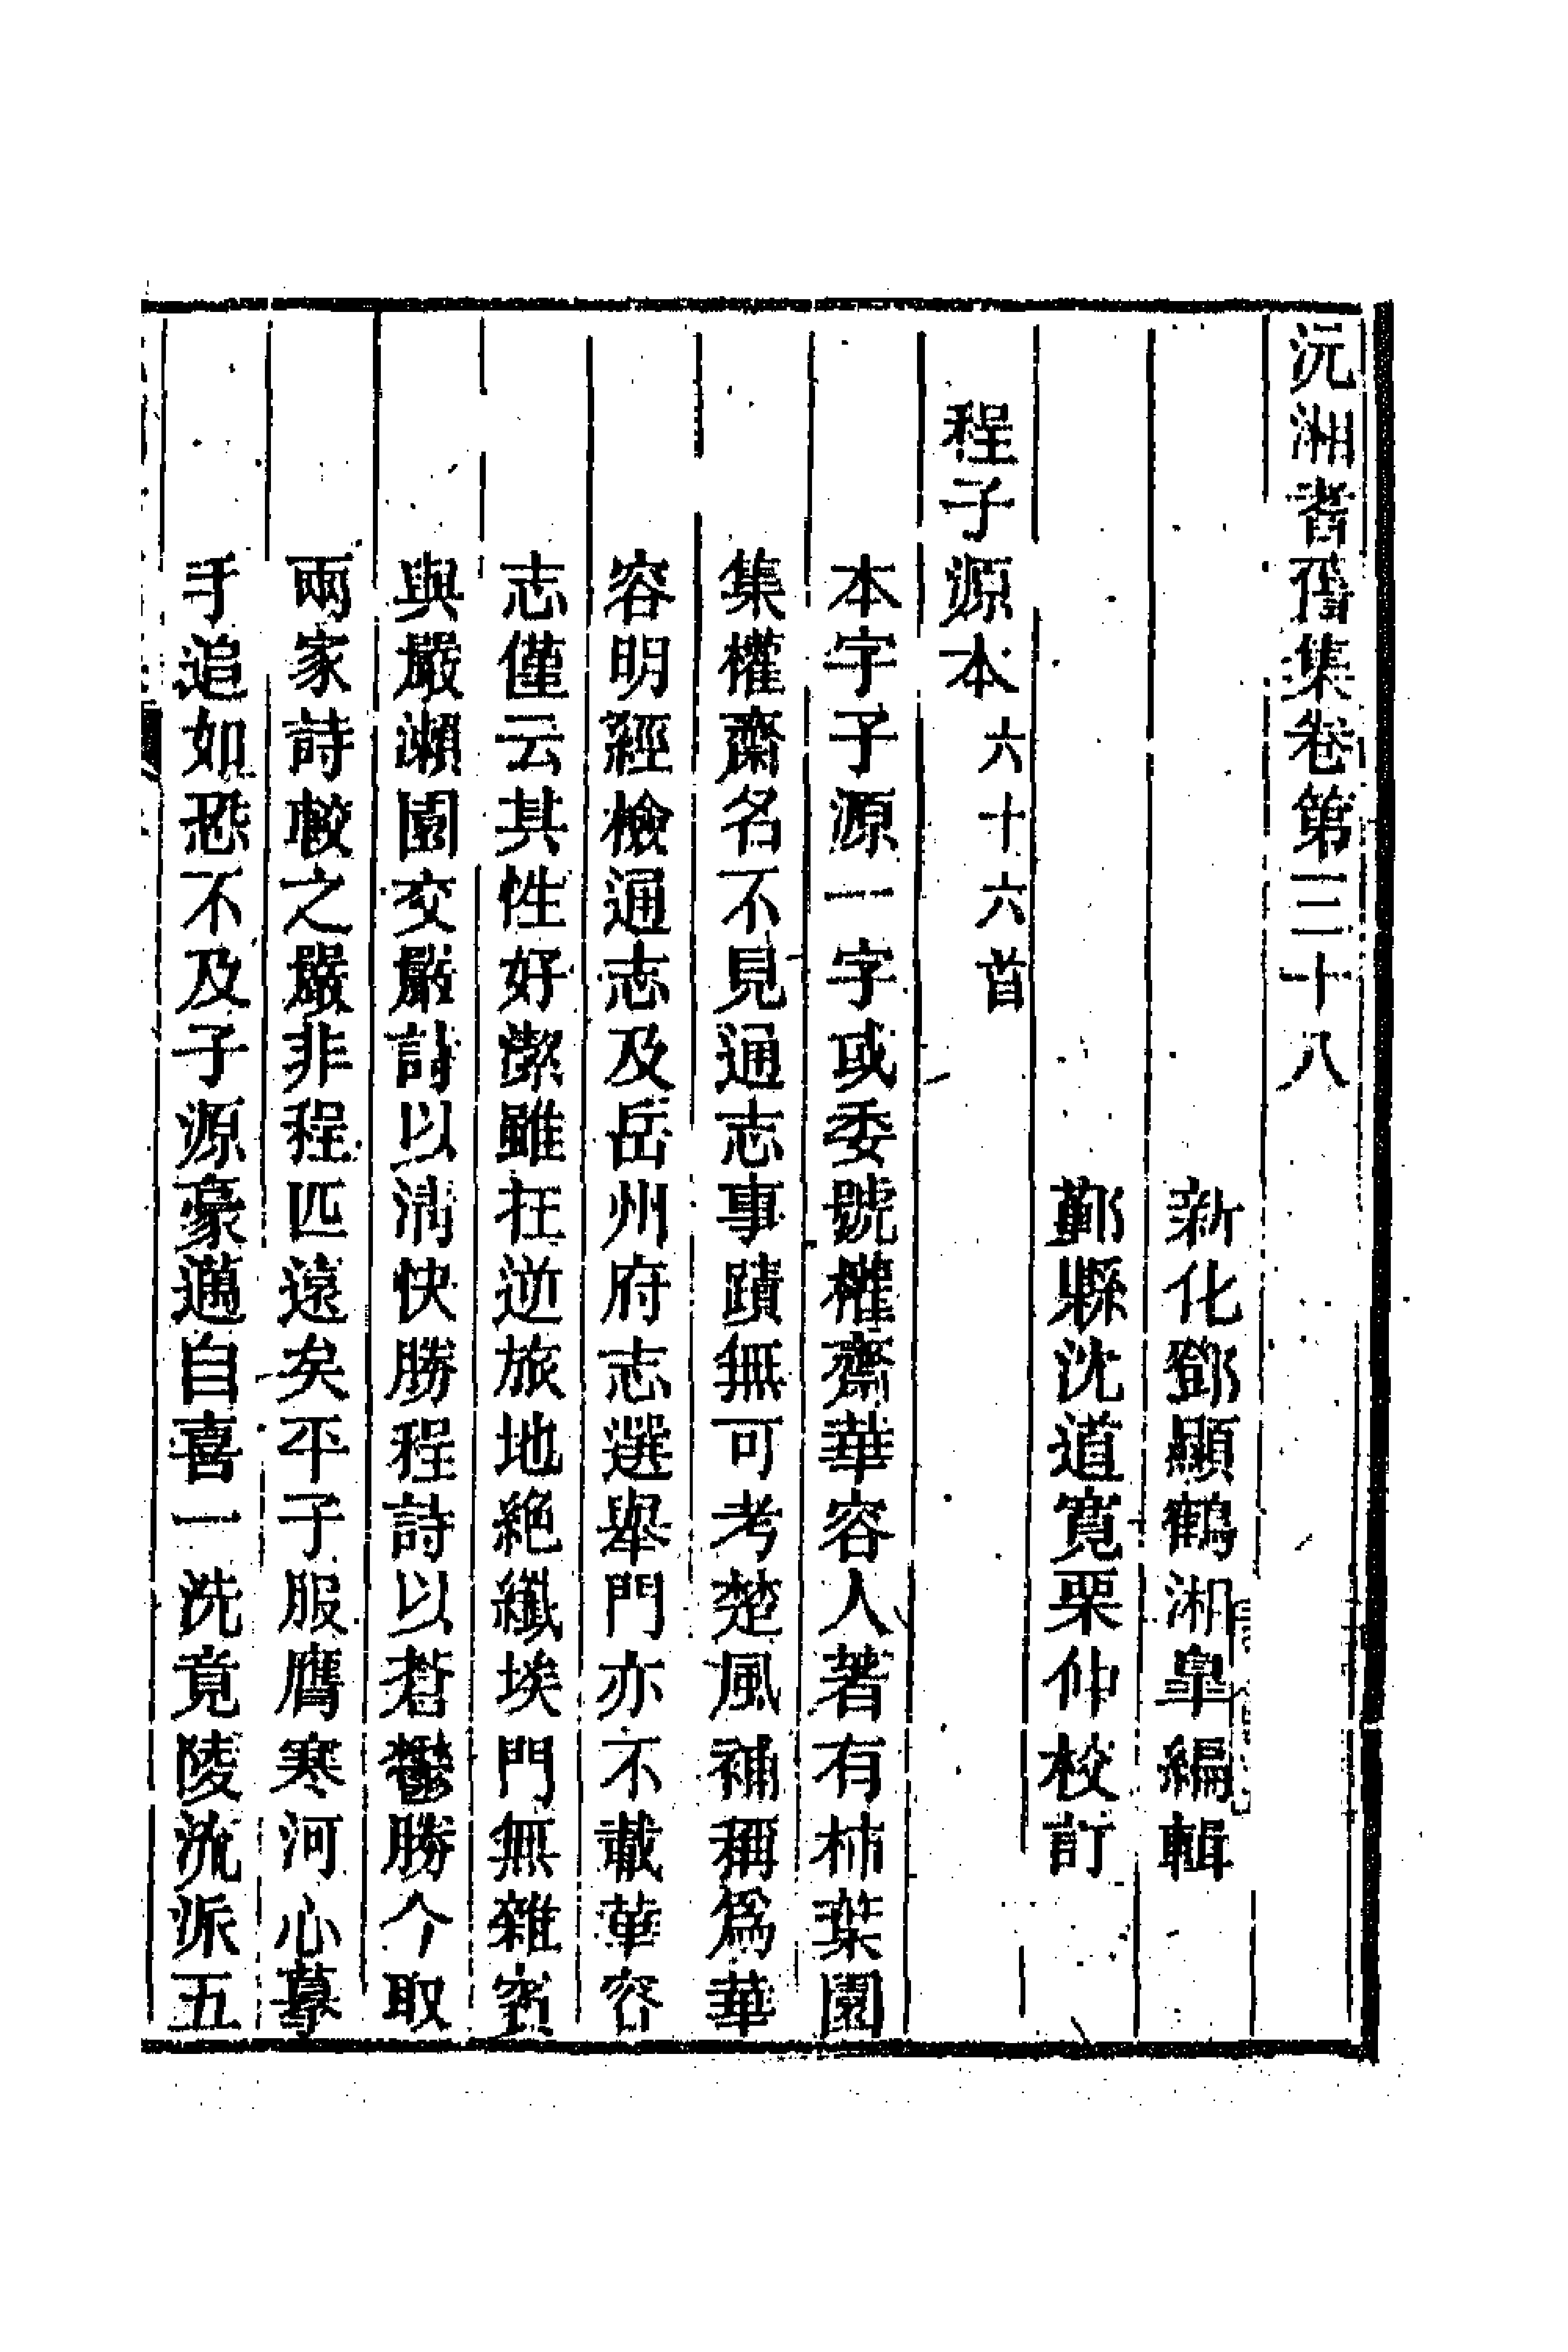 沅湘耆舊集卷第三十八
新化鄧顯鶴湘皐編輯
鄞縣沈道寬栗仲校訂
程子源本六十六首
本字子源一字或委號權齋華容人著有柿葉園
集權齋名不見通志事蹟無可考楚風補稱爲華
容明經檢通志及岳州府志選舉門亦不載華容
志僅云其性好潔雖在逆旅地絶纖埃門無雜賓
與嚴瀨園交嚴詩以淸快勝程詩以蒼鬱勝今取
兩家詩較之嚴非程匹遠矣平子服膺寒河心摹
手追如恐不及子源豪邁自喜一洗竟陵流派五